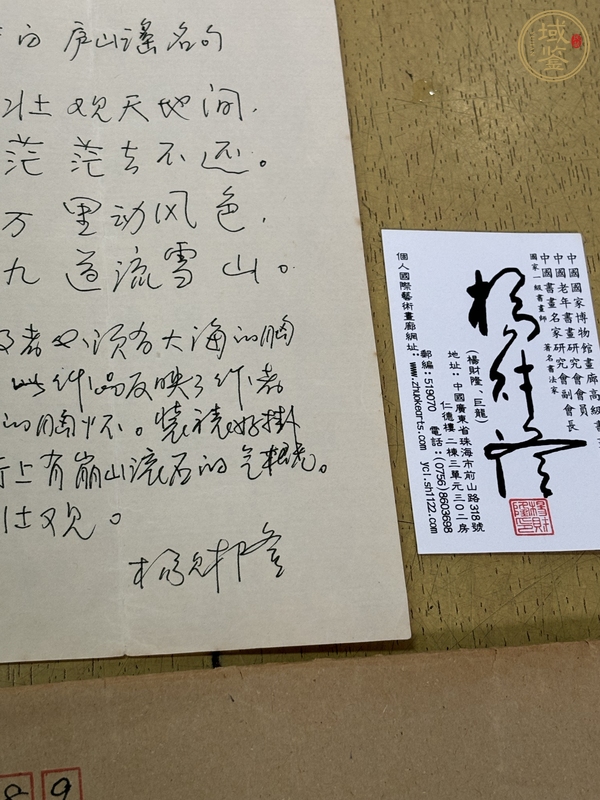 庐山谣名句
壮观天地间.
茫茫去不还。
万里动风色.
九道流雪山。
者必须有大海的胸
此作品反映了作者
的胸怀。装裱好掛
上有崩山流石的气概。
壮观。
杨财隆
域鉴
中國國家博物館畫廊高級書
中國老年書畫研究會會員
中國書畫名家研究會副會長
國家一級書畫師 著名書法家
楊財隆
楊財隆印
(楊財隆、巨龍)
地址:中國廣東省珠海市前山路318號
仁德樓二棟三單元三0二房
郵編:519070 電話:(0756)8603698
個人國際藝術畫廊網址: www.zhokearts.com ycl.sh1122.com
89